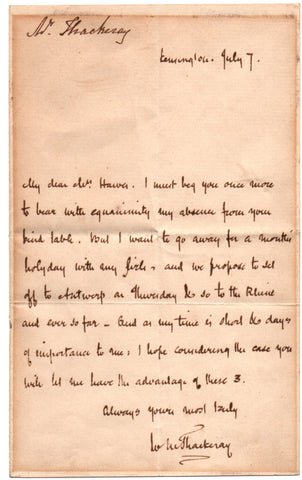 Mr. Thackeray
Kensington. July 7.
My dear Mrs. I must beg you once more
to bear with equanimity my absence from your
kind table. But I want to go away for a months
holyday with my Girls, and we propose to set
off to Antwerp on Thursday & so to the Rhine
and ever so far - And as my time is short & days
of importance to me, I hope considering the case you
will let me have the advantage of these 3.
Always yours most truly
W M Thackeray